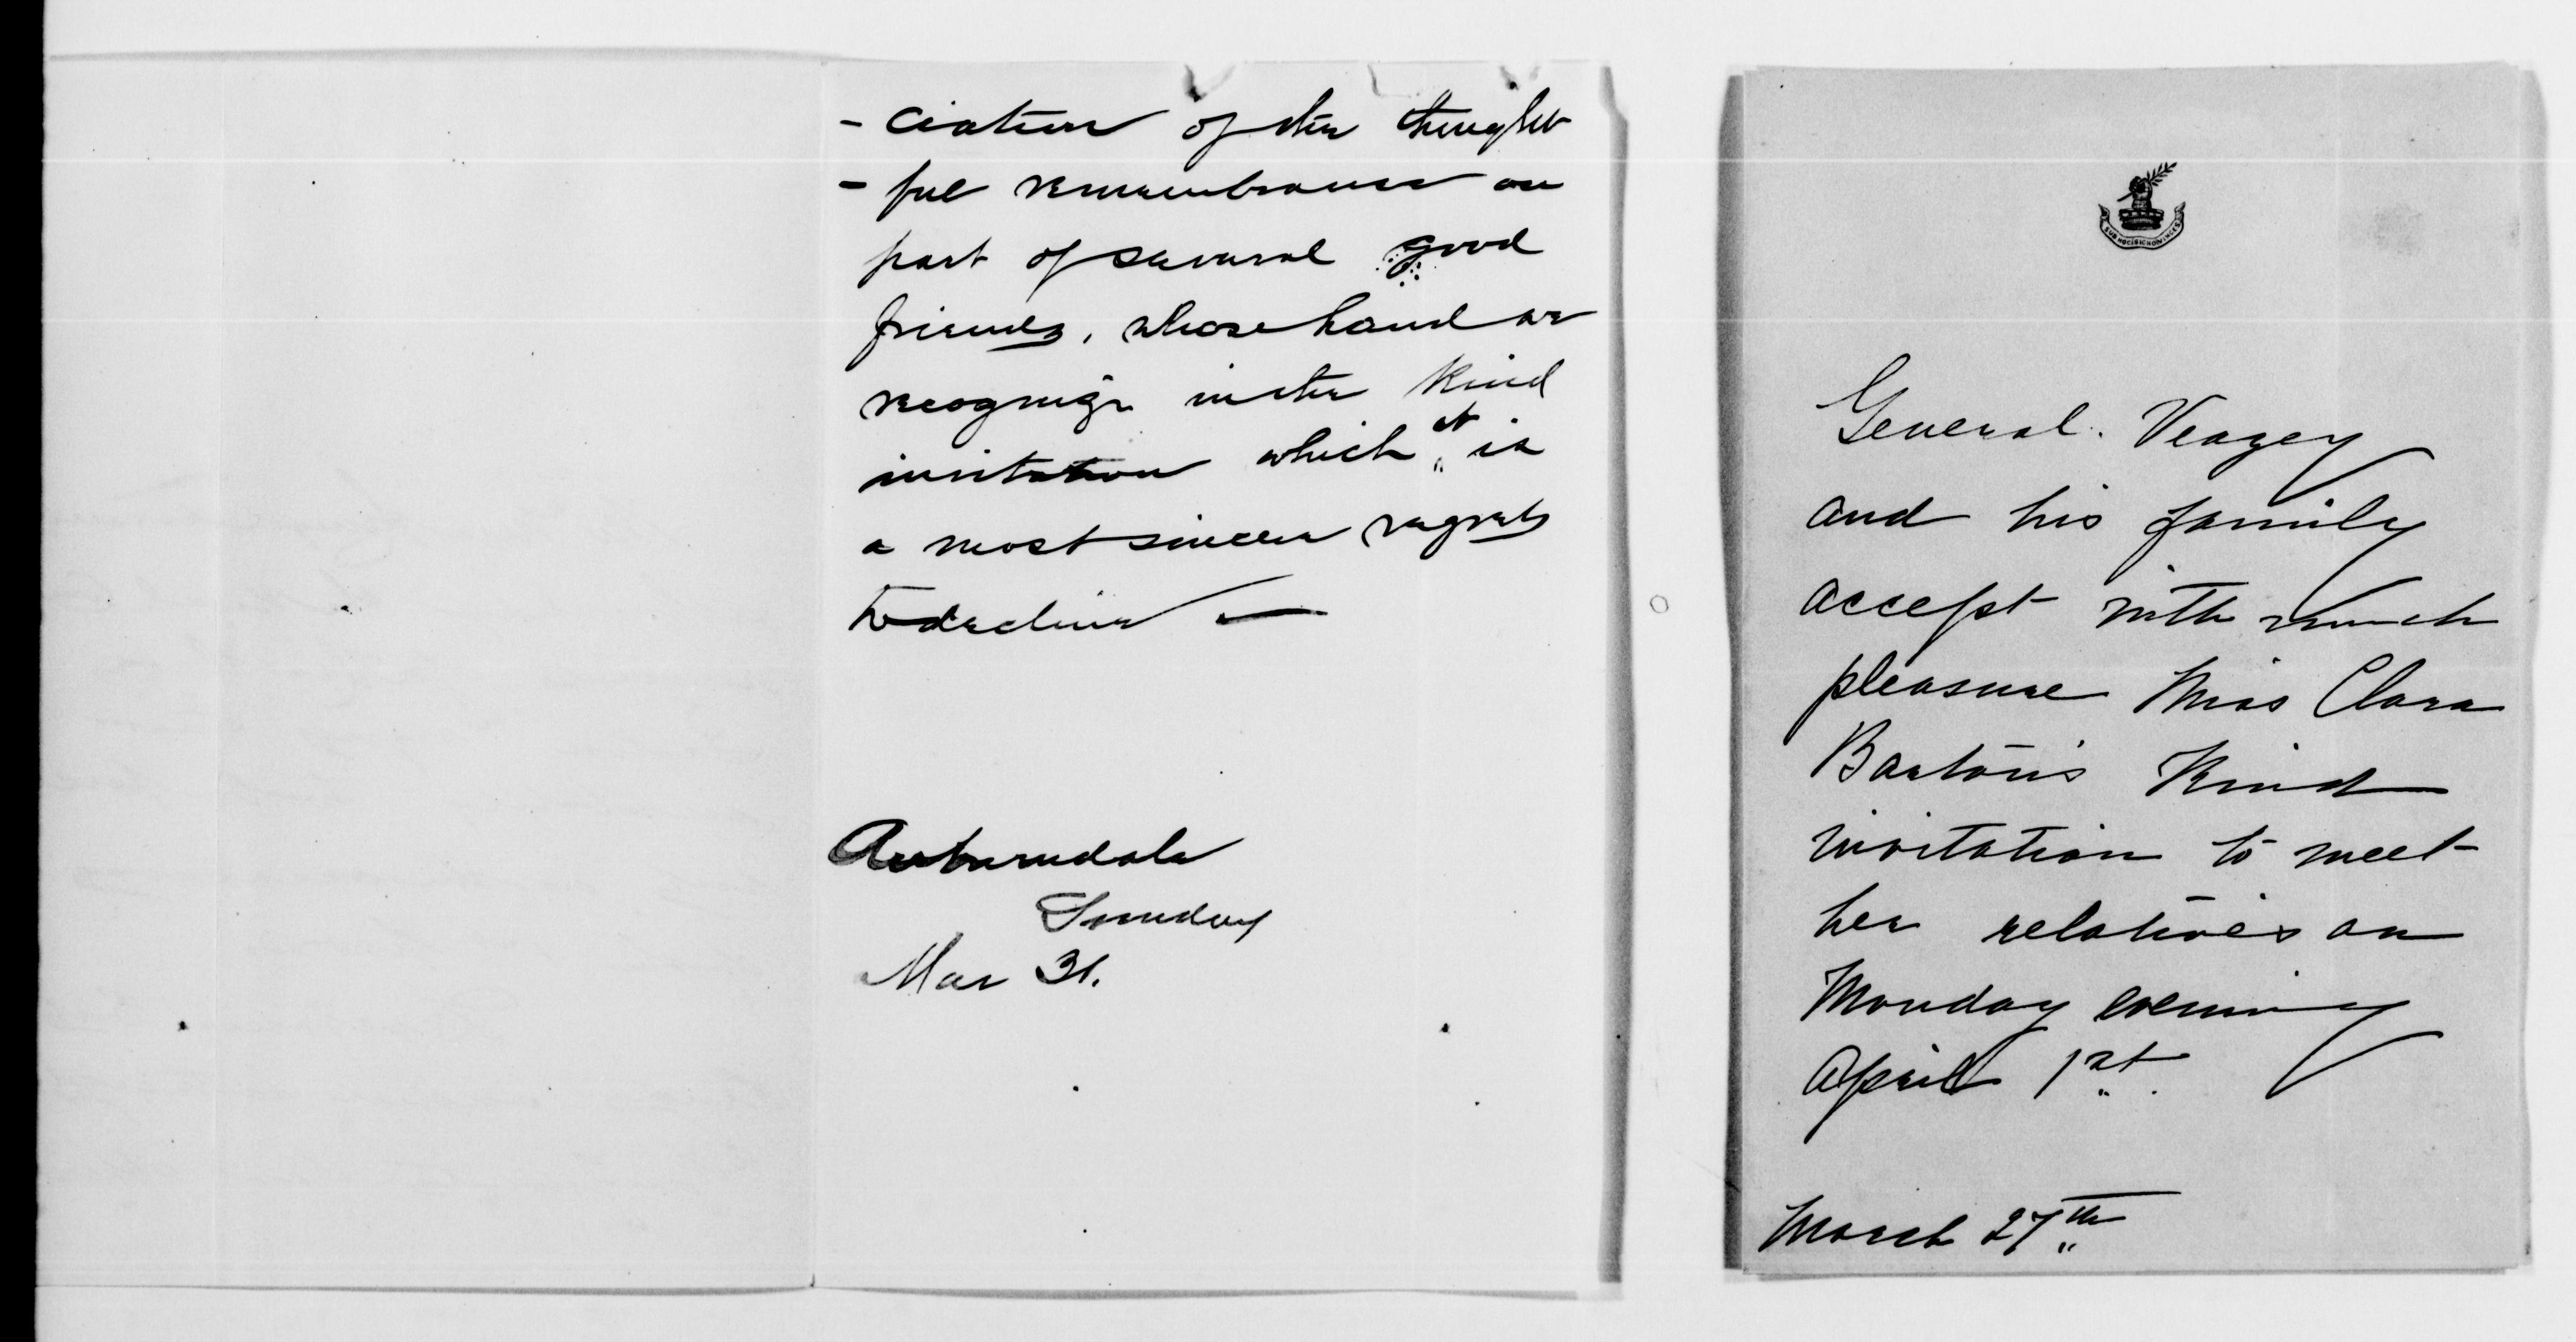 - ciation of the thought
- ful remembrance on
part of several good
friends, whose hand we
recognize in the kind
invitation which it is
a most sincere regret
to decline —
Auburndale
Sunday
Mar 31.
General Veazey
and his family
accept with much
pleasure Miss Clara
Barton's kind
invitation to meet
her relatives on
Monday evening
April 1st.
March 27th